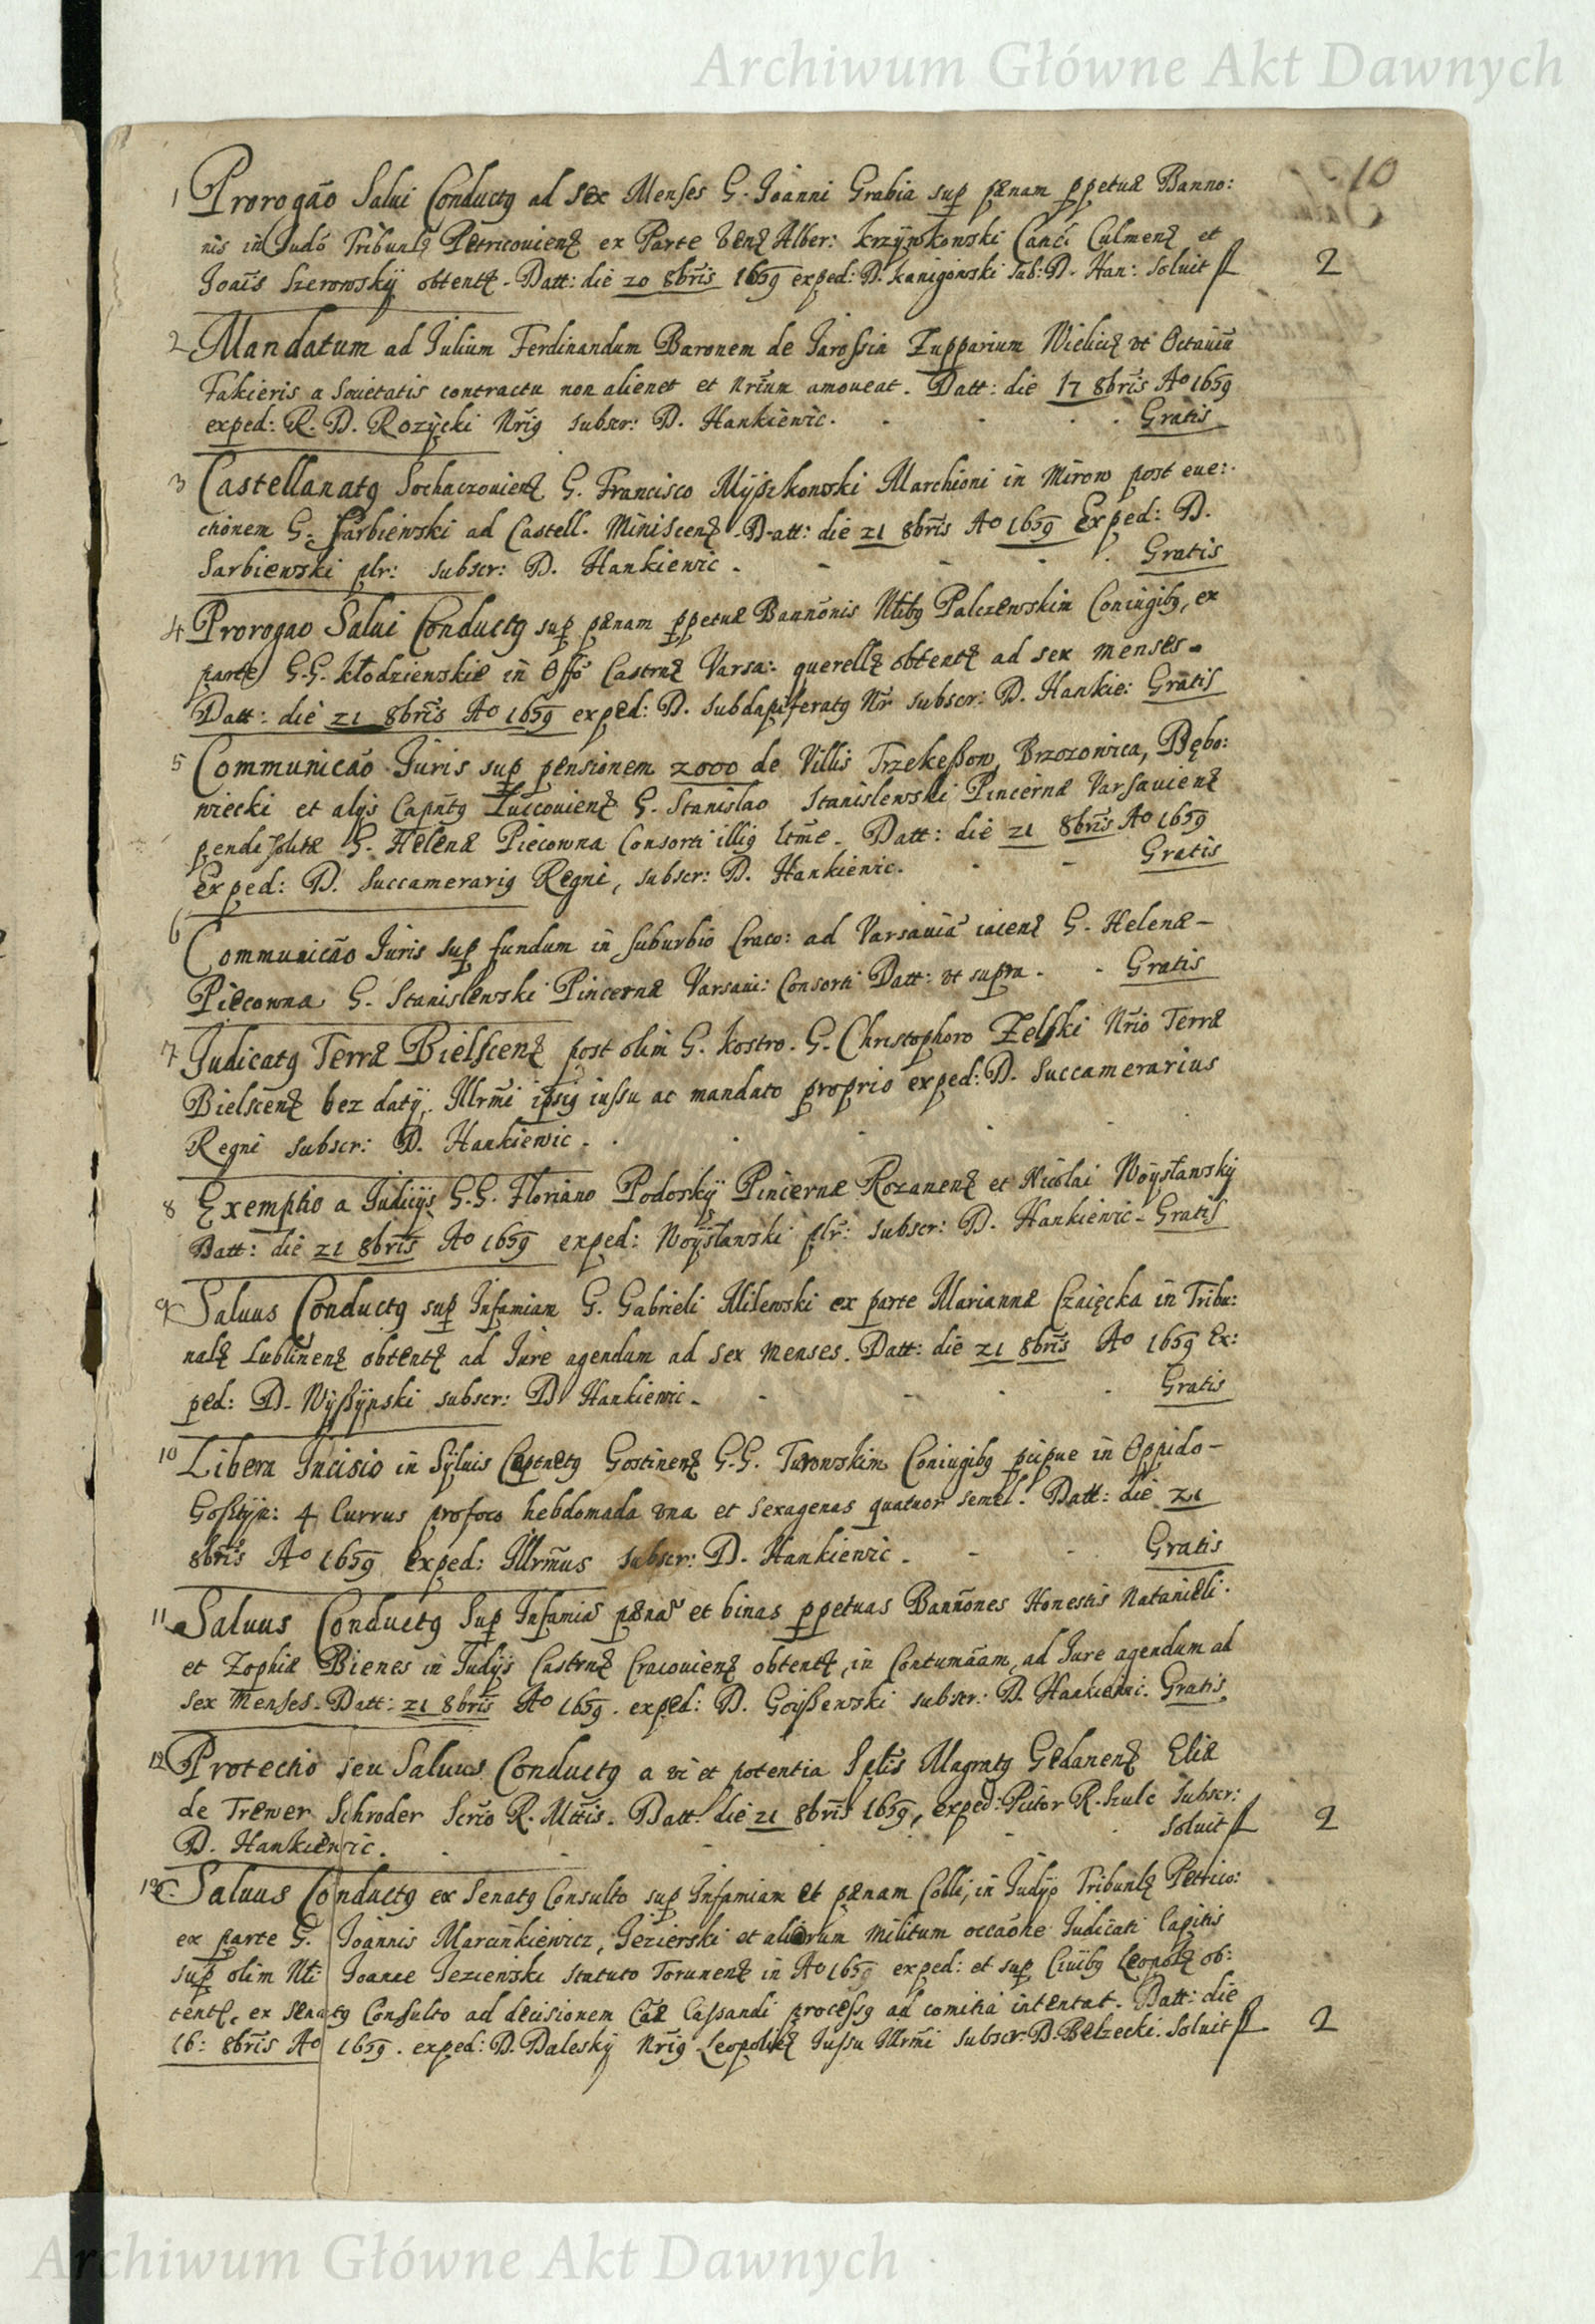 Archiwum Główne Akt Dawnych
10
1 Prorogão Salui Conductq ad sex Menses G. Joanni Grabia sup pænam ppetuæ Banno:
nis in Judō Tribunlȩ Petricouienȩ ex Parte Venȩ Alber: Krzÿpkowski Canci Culmenȩ et
Joaīs Szerowskÿ obtentȩ. Datt: die 20 8brīs 1659 exped: D. Kanigowski sub: D. Han: Soluit fl 2
2 Mandatum ad Julium Ferdinandum Baronem de Jarossin Zupparium Wielicȩ vt Octauiū
Fakieris a Societatis contractu non alienet et Nrīum amoueat. Datt: die 17 8brīs Ao 1659
exped: R. D. Rozÿcki Nrīq subscr: D. Hankiewic. Gratis
3 Castellanatq Sochaczouienȩ G. Francisco Mÿszkowski Marchioni in Mirow post eue:
ctionem G. Sarbiewski ad Castell. Miniscenȩ. Datt: die 21 8brīs Ao 1659 Exped: D.
Sarbiewski plr: subscr: D. Hankiewic. Gratis
4 Prorogao Salui Conductq sup pænam ppetuæ Bannōnis Nlibq Palczewskim Coniugibq, ex
parte G.G. Kłodzienskie in Offō Castrnȩ Varsa: querellȩ obtentȩ ad sex menses.
Datt: die 21 8brīs Ao 1659 exped: D. Subdapiferatq Nr subscr: D. Hankie: Gratis
5 Communicāo Juris sup pensionem 2000 de Villis Trzekeßow, Brzozowica, Dębo:
wiecki et alÿs Capntq Łuccouienȩ G. Stanislao Stanislewski Pincernæ Varsauienȩ
pendi solitæ G. Helenæ Piecowna Consorti illiq ltme. Datt: die 21 8brīs Ao 1659
Exped: D. Succamerariq Regni, subscr: D. Hankiewic. Gratis
6 Communicāo Juris sup fundum in suburbio Craco: ad Varsauiā iacenȩ G. Helenæ
Piecowna G. Stanislewski Pincernæ Varsaui: Consorti Datt: vt supra. Gratis
7 Judicatq Terræ Bielscenȩ post olim G. Kostro. G. Christophoro Zelski Nrio Terræ
Bielscenȩ bez datÿ. Illrmī ipsiq iussu ac mandato proprio exped: D. Succamerarius
Regni subscr: D. Hankiewic.
8 Exemptio a Judicÿs G.G. Floriano Podoskÿ Pincernæ Rozanenȩ et Nicolai Woysławskÿ
Datt: die 21 8brīs Ao 1659 exped: Woysławski plr: subscr: D. Hankiewic. Gratis
9 Saluus Conductq sup Infamiam G. Gabrieli Milewski ex parte Mariannæ Czaięcka in Tribu:
nalȩ Lublinenȩ obtentȩ ad Jure agendum ad sex menses. Datt: die 21 8brīs Ao 1659 Ex:
ped: D. Wÿßÿnski subscr: D. Hankiewic. Gratis
10 Libera Incisio in Sÿluis Capnetq Gostinenȩ G.G. Turowskim Coniugibq pcipue in Oppido
Goßtÿn: 4 Currus pro foco hebdomada vna et sexagenas quatuor semel. Datt: die 21
8brīs Ao 1659 exped: Illrmus subscr: D. Hankiewic. Gratis
11 Saluus Conductq sup Infamiā pænas et binas ppetuas Bannōnes Honestis Natanieli
et Zophiæ Bienes in Judÿs Castrnȩ Cracouienȩ obtentȩ, in Contumāam, ad Jure agendum ad
sex Menses. Datt: 21 8brīs Ao 1659. exped: D. Goißewski subscr: D. Hankiewi. Gratis
12 Protectio seu Saluus Conductq a vi et potentia Splis Magratq Gedanenȩ Eliæ
de Trewer Schroder Scrīo R. Mttis. Datt: die 21 8brīs 1659, exped: Pictor R. Szulc subscr:
D. Hankiewic. Soluit fl 2
13 Saluus Conductq ex Senatq Consulto sup Infamiam et pænam Colli, in Judÿo Tribunlȩ Petrico:
ex parte G. Joannis Marcinkiewicz, Jezierski et aliorum militum occaōne Judicati Capitis
sup olim Nli Joanne Jezierski statuto Torunenȩ in Ao 1659 exped: et sup Ciuibq Leopolȩ ob:
tentȩ, ex Senatq Consulto ad decisionem Cāæ Cassandi processq ad comitia intentat. Datt: die
16: 8brīs Ao 1659. exped: D. Daleskÿ Nriq Leopolienȩ Jussu Illrmi subscr: D. Belzecki. Soluit fl 2
Archiwum Główne Akt Dawnych